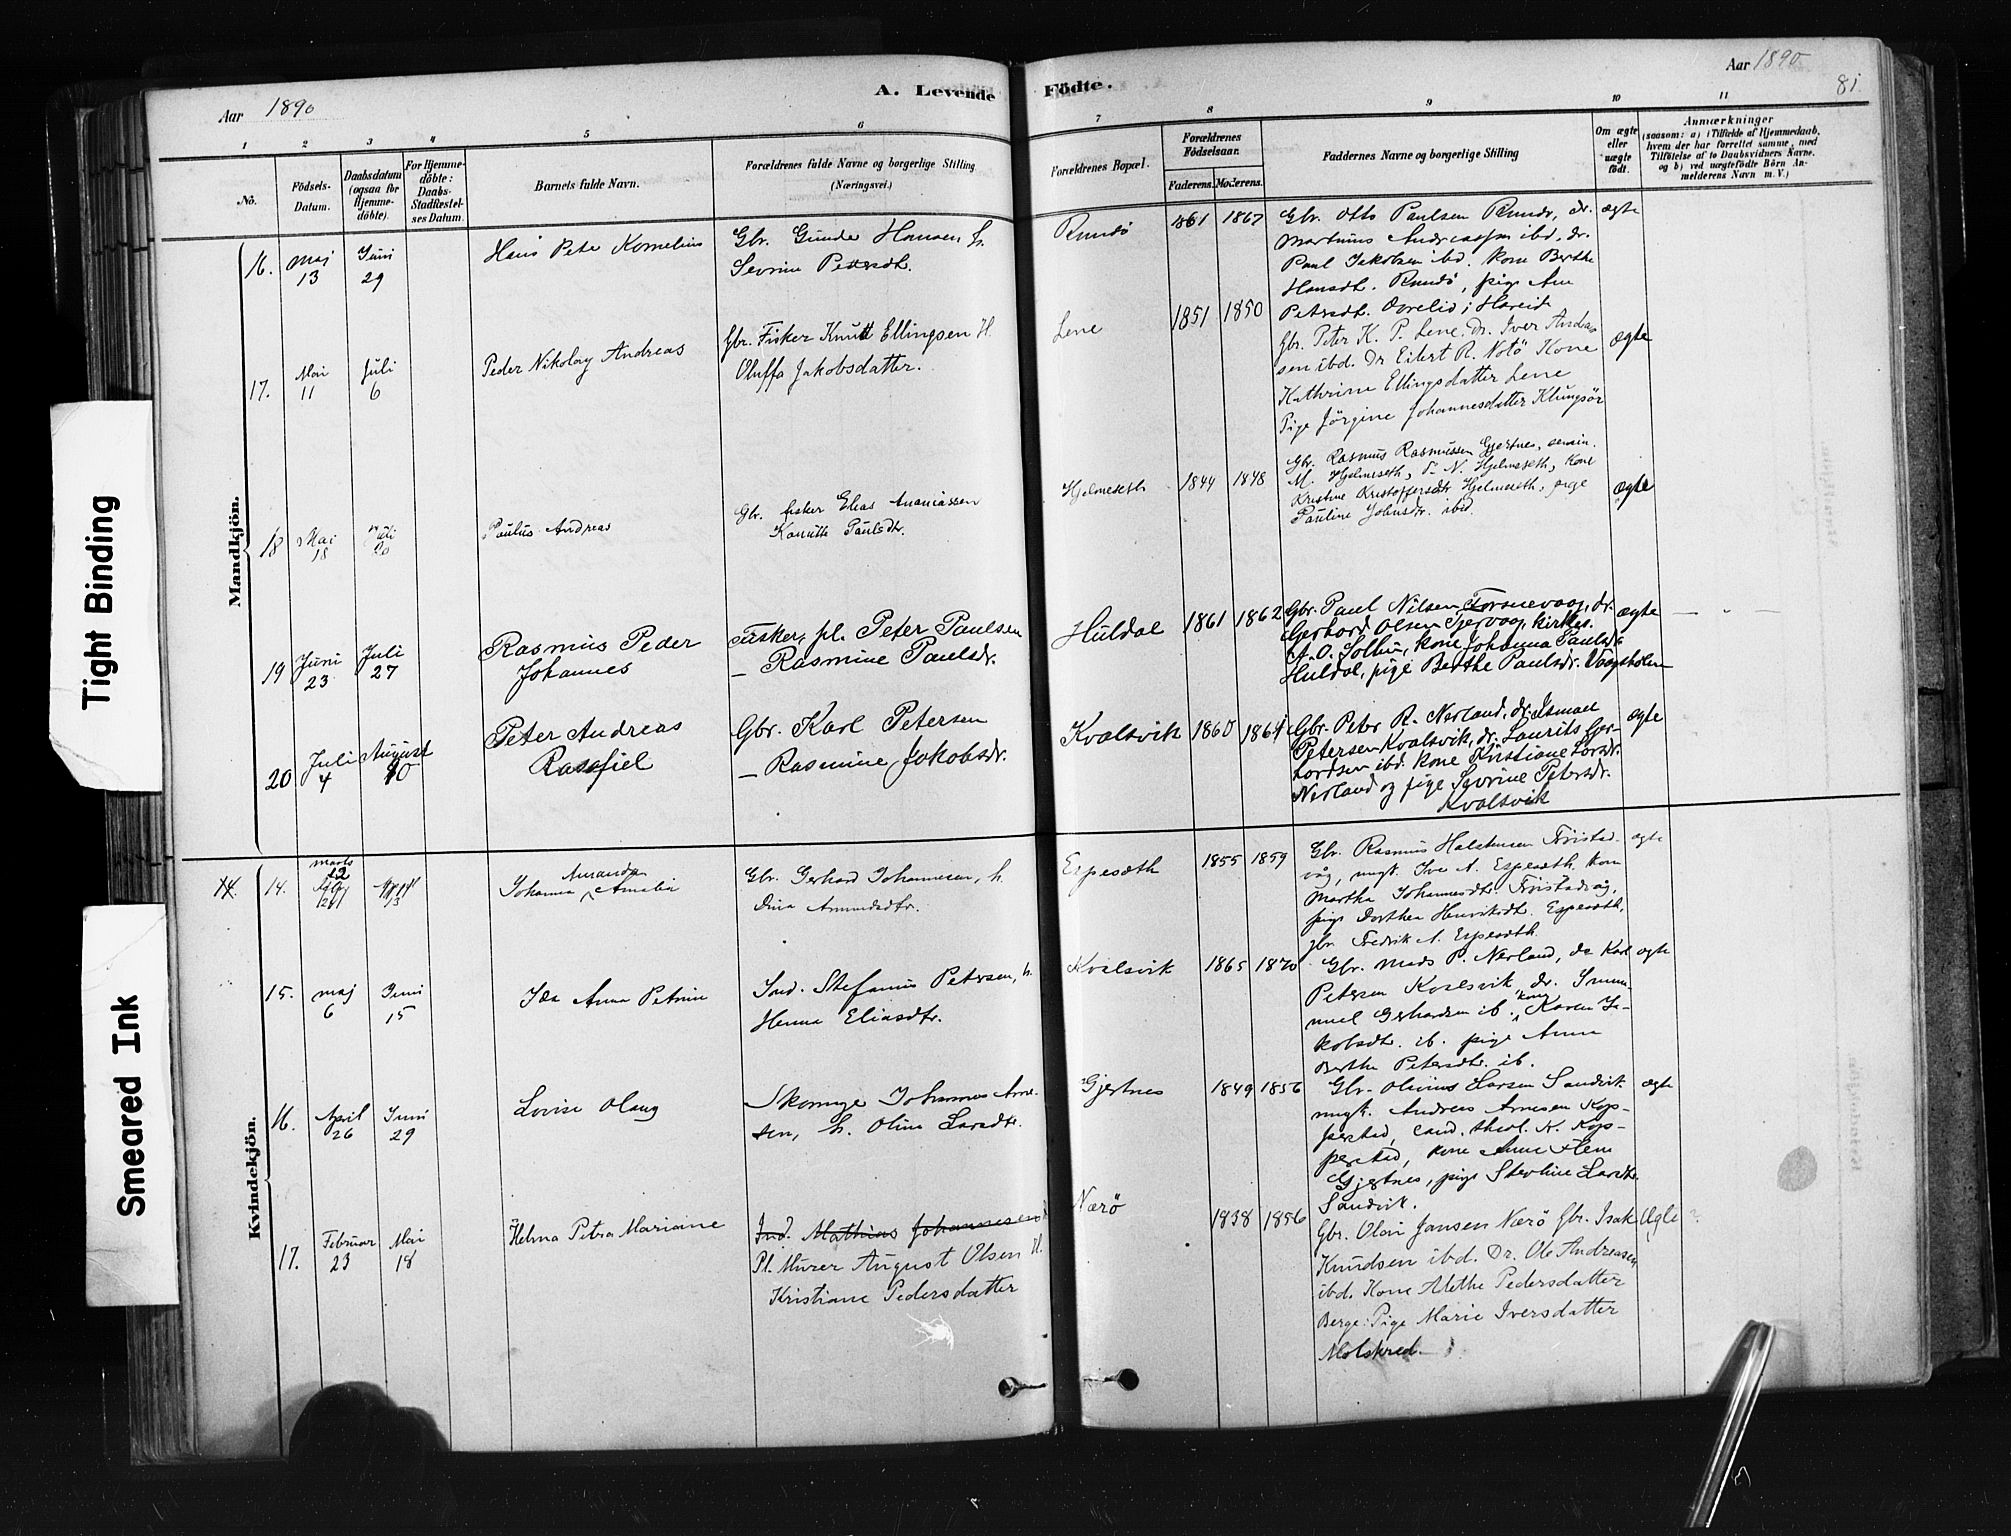 Tight Binding
Smeared Ink
Aar 1890
A. Levende Födte.
Aar 1890
81
1 2 3 4 5 6 7 8 9 10 11
No.
Födsels-
Datum.
Daabsdatum
(ogsaa for
Hjemme-
döbte).
For Hjemme-
döbte:
Daabs-
Stadfæstel-
ses Datum.
Barnets fulde Navn.
Forældrenes fulde Navne og borgerlige Stilling
(Næringsvei.)
Forældrenes Bopæl.
Forældrenes
Födselsaar.
Faderens. Moderens.
Faddernes Navne og borgerlige Stilling
Om ægte
eller
uægte
födt.
Anmærkninger
(saasom: a) i Tilfælde af Hjemmedaab,
hvem der har forrettet samme, med
Tilföielse af to Daabsvidners Navne.
og b) ved uægtefödte Börn An-
melderens Navn m. V.)
Mandkjön.
16. Maj 13 Juni 29
Hans Peter Kornelius
Gbr. Gunder Hansen, h.
Sevrine Petersdt.
Rundö
1861 1867
Gbr. Otto Paulsen Rundö, dr.
Martinus Andreassen ibd, dr.
Paul Jakobsen ibd. kone Berthe
Hansdt. Rundö, pige Ane
Petersdt. Overlid i Hareid
ægte
17. Mai 11 Juli 6
Peder Nikolay Andreas
Gbr. Fisker Knut Ellingsen H.
Oluffa Jakobsdatter.
Lene
1851 1850
Gbr. Peter K. P. Lene. Dr. Iver Andrea-
sen ibd. Dr Eilert R. Notö Kone
Kathrine Ellingsdatter Lene
Pige Jörgine Johannesdatter Klungsör
ægte
18 Mai 18 Juli 20
Paulus Andreas
Gbr. fisker Elias Ananiassen
Kanutte Paulsdtr.
Hjelmeseth
1844 1848
Gbr. Rasmus Rasmussen Gjertnes, semin.
M. Hjelmeseth, d- N. Hjelmeseth, kone
Kristine Kristoffersdtr Hjelmeseth, pige
Pauline Johnsdtr. ibid.
ægte
19 Juni 23 Juli 27
Rasmus Peder
Johannes
Fisker, pl. Peter Paulsen
— Rasmine Paulsdr.
Huldal
1861 1862
Gbr. Paul Nilsen Torsnevaag, dr.
Gerhard Olsen Tjervaag, kirkes.
A. O. Solhim, kone Johanna Paulsdr
Huldal, pige Berthe Paulsdr. Vaagsholm
ægte
20 Juli 4 August 10
Peter Andreas
Rasfiel
Gbr. Karl Petersen
— Rasmine Jakobsdr.
Kvalsvik
1860 1864
Gbr. Peter R. Nerland, dr. Ismael
Petersen Kvalsvik, dr. Laurits Ger-
hardsen ibd. kone Kristiane Larsdr.
Nerland og pige Sevrine Petersdr.
Kvalsvik
ægte
Kvindekjön.
14. Marts 12
Johanna Amanda Amelia
Gbr. Gerhard Johannesen, h.
Dina Amundsdtr.
Espeseth
1855 1859
Gbr. Rasmus Halstensen Fröistad-
våg, ungk. Iver A. Espeseth, kone
Martha Johannesdt. Fröistadvåg,
pige Dorthea Henriksdt. Espeseth,
gbr. Fredrik A. Espeseth.
ægte
15. Maj 6 Juni 15
Ida Anna Petrine
Ind. Stefanus Petersen, h.
Hanna Eliasdtr.
Kvalsvik
1865 1870
Gbr. Mads P. Nerland, dr Karl
Petersen Kvalsvik, dr. Imma-
nuel Gerhardsen ib. kone Karen Ja-
kobsdtr. ib. pige Anne
Berthe Petersdtr. ib.
ægte
16. April 26 Juni 29
Lovise Olaug
Skomager Johannes Arne-
sen, h. Oline Larsdtr.
Gjertnes
1849 1856
Gbr. Olivius Larsen Sandvik
ungk. Andreas Arnesen Kop-
perstad, cand. theol. N. Kop-
perstad, kone Anne Flem
Gjertnes, pige Sevrine Larsdtr.
Sandvik.
ægte
17. Februar 23 Mai 18
Helma Petra Mariane
Ind. Mathias Johannesen
Pl. Murer August Olsen H.
Kristiane Pedersdatter
Nærö
1838 1856
Gbr. Olai Jansen Nærö Gbr. Isak
Knudsen ibd. Dr. Ole Andreasen
ibd. Kone Alethe Pedersdatter
Berge. Pige Marie Iversdatter
Molskred.
Ægte